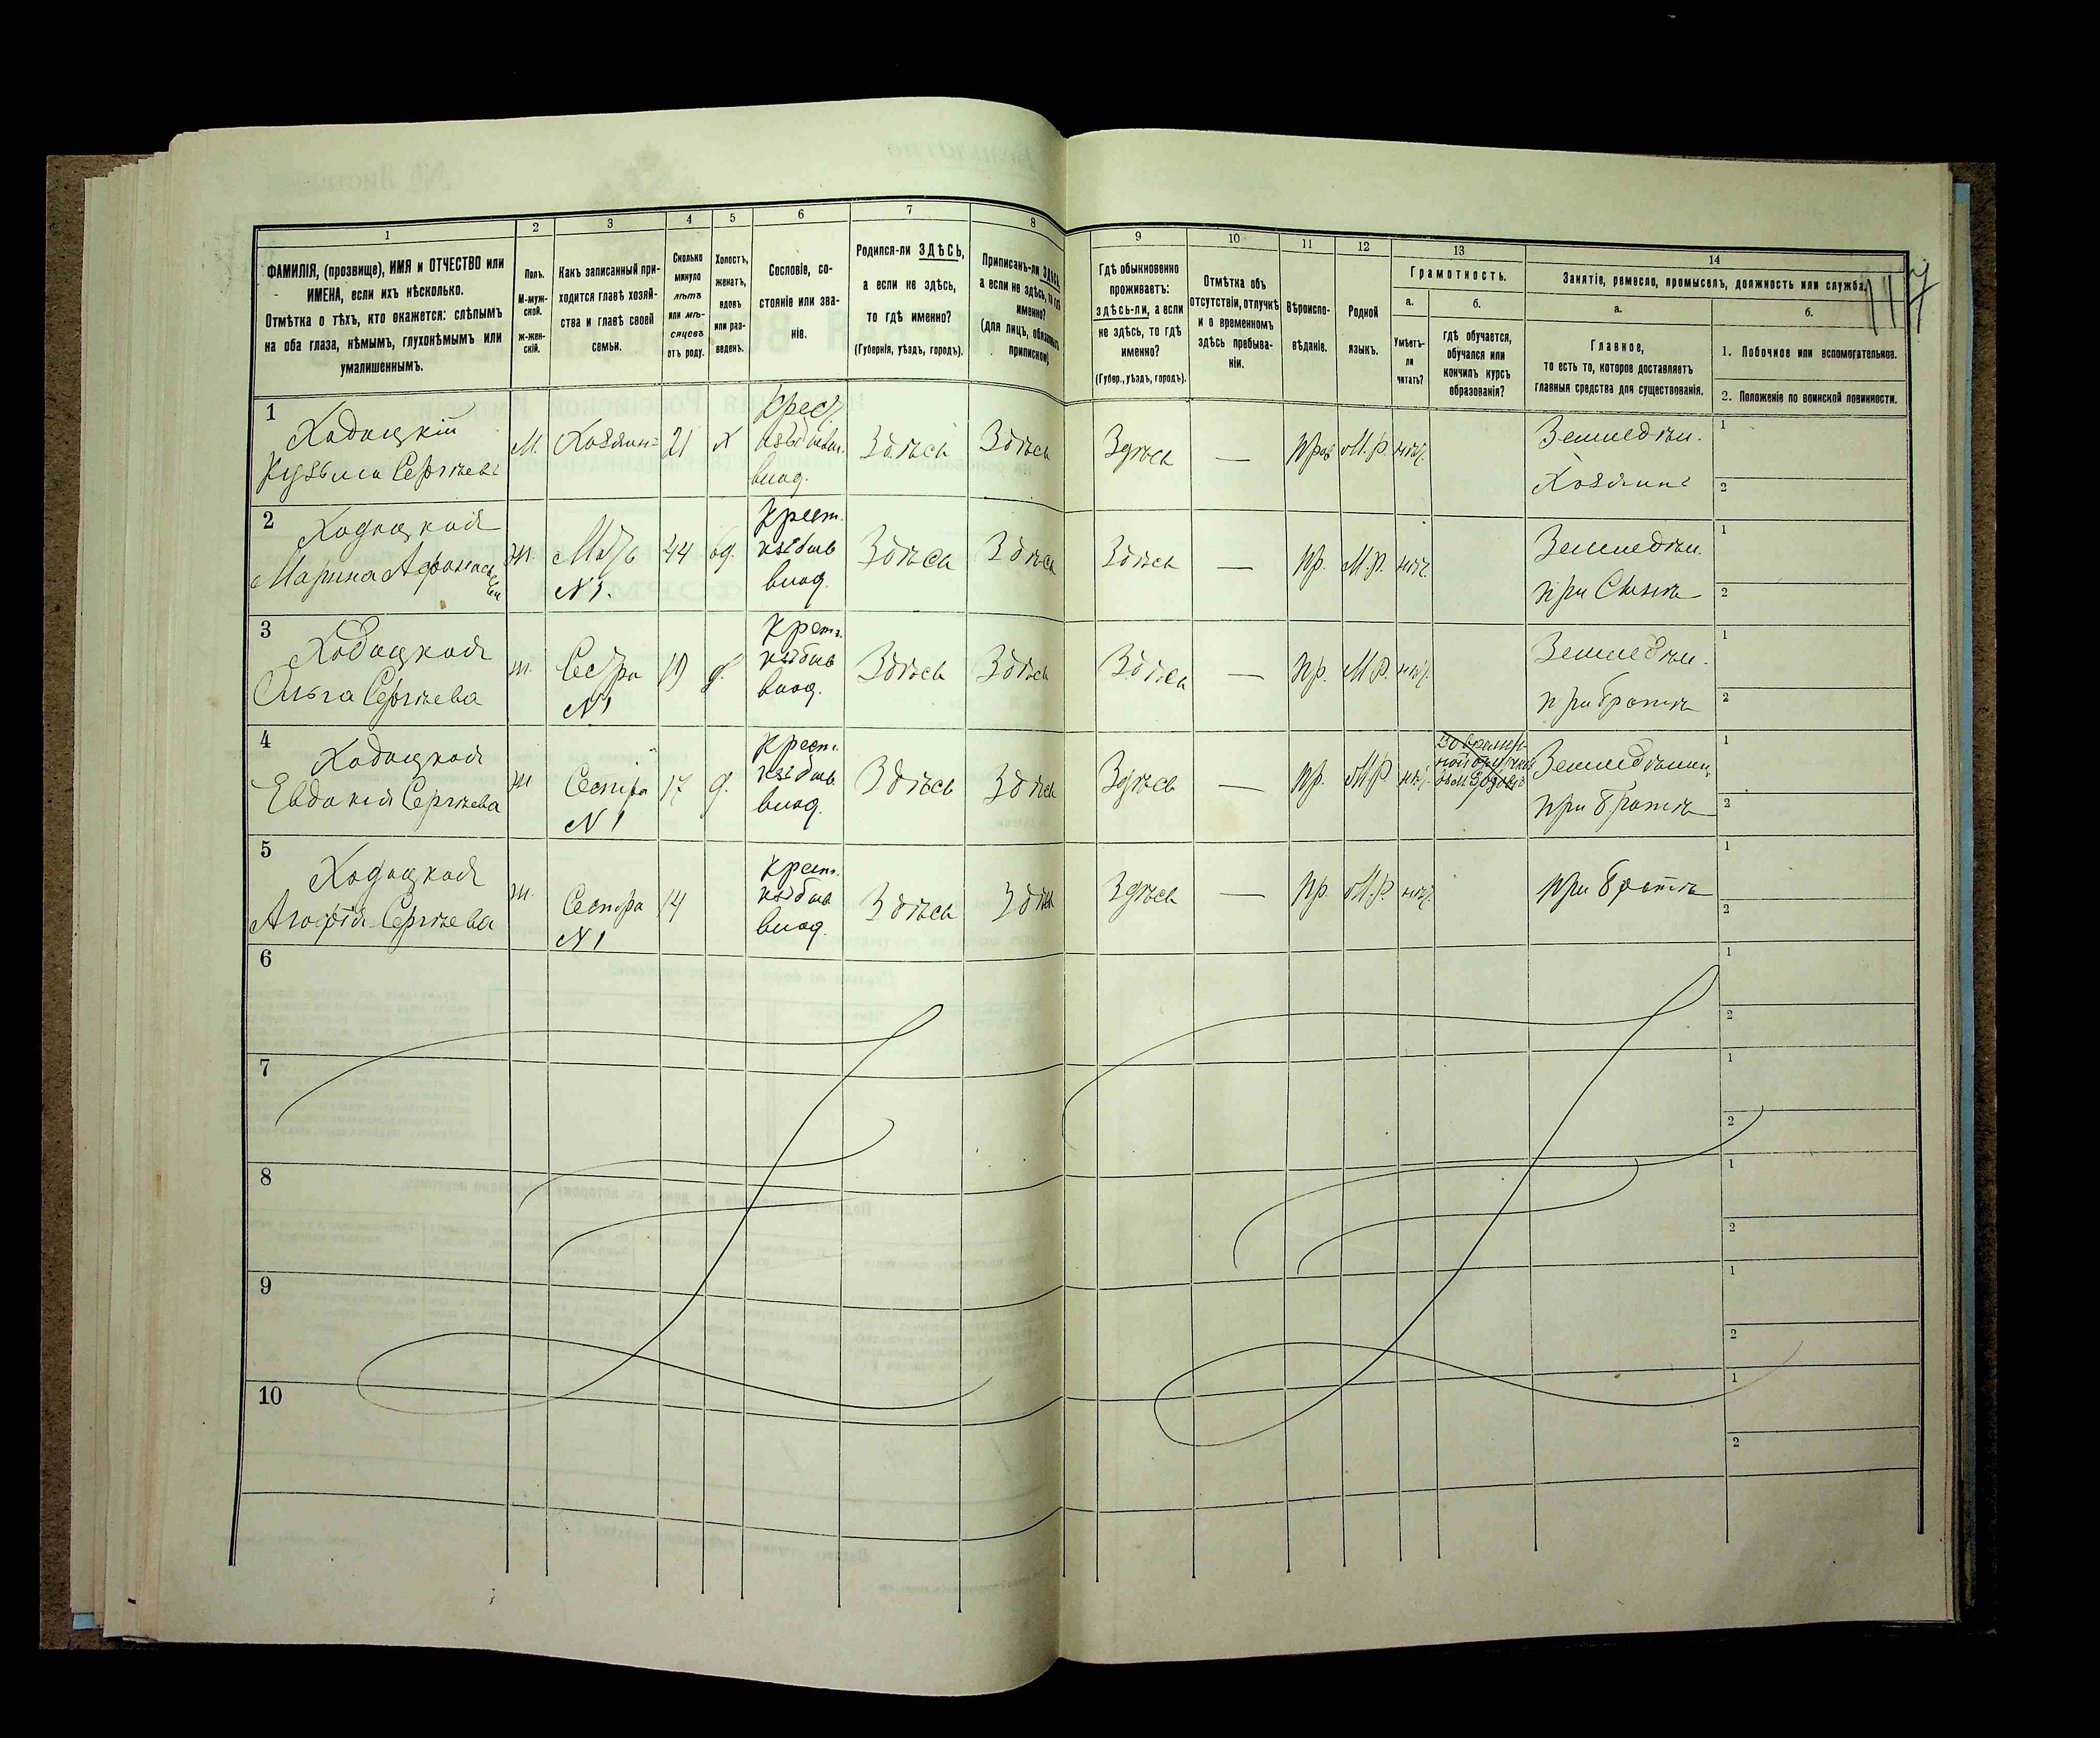 1
2
3
4
5
6
7
8
ФАМИЛІЯ, (прозвище), ИМЯ и ОТЧЕСТВО или
ИМЕНА, если ихъ нѣсколько.
Отмѣтка о тѣхъ, кто окажется: слѣпымъ
на оба глаза, нѣмымъ, глухонѣмымъ или
умалишеннымъ.
Полъ.
М-муж-
ской.
Ж-жен-
скій.
Какъ записанный при-
ходится главѣ хозяй-
ства и главѣ своей
семьи.
Сколько
минуло
лѣтъ
или мѣ-
сяцевъ
отъ роду.
Холостъ,
женатъ,
вдовъ
или раз-
веденъ.
Сословіе, со-
стояніе или зва-
ніе.
Родился-ли ЗДѢСЬ,
а если не здѣсь,
то гдѣ именно?
(Губернія, уѣздъ, городъ).
Приписанъ-ли ЗДѢСЬ,
а если не здѣсь, то гдѣ
именно?
(для лицъ, обязанныхъ
припискою)
9
10
11
12
13
14
Гдѣ обыкновенно
проживаетъ:
здѣсь-ли, а если
не здѣсь, то гдѣ
именно?
(Губер., уѣздъ, городъ).
Отмѣтка объ
отсутствіи, отлучкѣ
и о временномъ
здѣсь пребыва-
ніи.
Вѣроиспо-
вѣданіе.
Родной
языкъ.
Грамотность.
а.
Умѣетъ-
ли
читать?
б.
гдѣ обучается,
обучался или
кончилъ курсъ
образованія?
Занятіе, ремесло, промыселъ, должность или служба.
117
а.
Главное,
то есть то, которое доставляетъ
главныя средства для существованія.
б.
1. Побочное или вспомогательное.
2. Положеніе по воинской повинности.
1
Ходацкій
Кузьма Сергѣевъ
М.
Хозяинъ
21
Х
Крест.
изъ бывш.
влад.
Здѣсь
Здѣсь
Здѣсь
—
Прав
М.Р.
нѣт.
Земледѣл.
Хозяинъ
1
2
2
Ходацкая
Марина Афанась
ева
Ж.
Мать
N 1.
44
вд.
Крест.
изъ бывш
влад.
Здѣсь
Здѣсь
Здѣсь
—
Пр.
М.Р.
нѣт.
Земледѣл.
при Сынѣ
1
2
3
Ходацкая
Ольга Сергѣева
Ж.
Сестра
N 1
19
д.
Крест.
изъ бывш
влад.
Здѣсь
Здѣсь
Здѣсь
—
Пр.
М.Р.
нѣт.
Земледѣл.
при братѣ
1
2
4
Ходацкая
Евдокія Сергѣева
Ж
Сестра
N 1
17
д.
Крест.
изъ бывш
влад.
Здѣсь
Здѣсь
Здѣсь
—
Пр.
М.Р.
нѣт.
Земледѣлиц
при братѣ
1
2
5
Ходацкая
Агафія Сергѣева
Ж.
Сестра
N 1
14
Крест.
изъ бывш
влад.
Здѣсь
Здѣсь
Здѣсь
—
Пр.
М.Р.
нѣт.
при братѣ
1
2
6
1
2
7
1
2
8
1
2
9
1
2
10
1
2